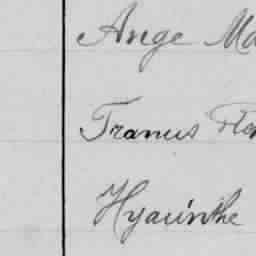 Ange Ma
Francis Hen
Hyacinthe